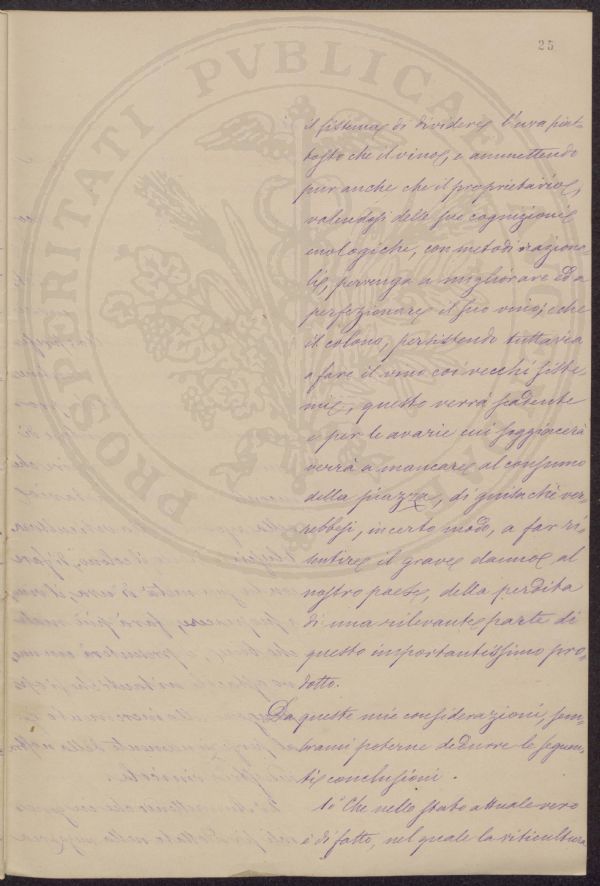 25
PROSPERITATI PVBLICAE
il sistema di dividere l'uva piut-
tosto che il vino, e ammettendo
pur anche che il proprietario,
valendosi delle sue cognizioni
enologiche, con metodi raziona
li, pervenga a migliorare ed a
perfezionare il suo vino; e che
il colono, persistendo tuttavia
a fare il vino coi vecchi siste
mi, questo verrà scadente
e per le avarie cui soggiacerà
verrà a mancare al consumo
della piazza, di guisa chè ver
rebbesi, in certo modo, a far ri-
sentire il grave danno al
nostro paese, della perdita
di una rilevante parte di
questo importantissimo pro-
dotto.
Da queste mie considerazioni, sem-
brami poterne dedurre le seguen-
ti conclusioni.
1º Che nello stato attuale vero
e di fatto, nel quale la viticultura